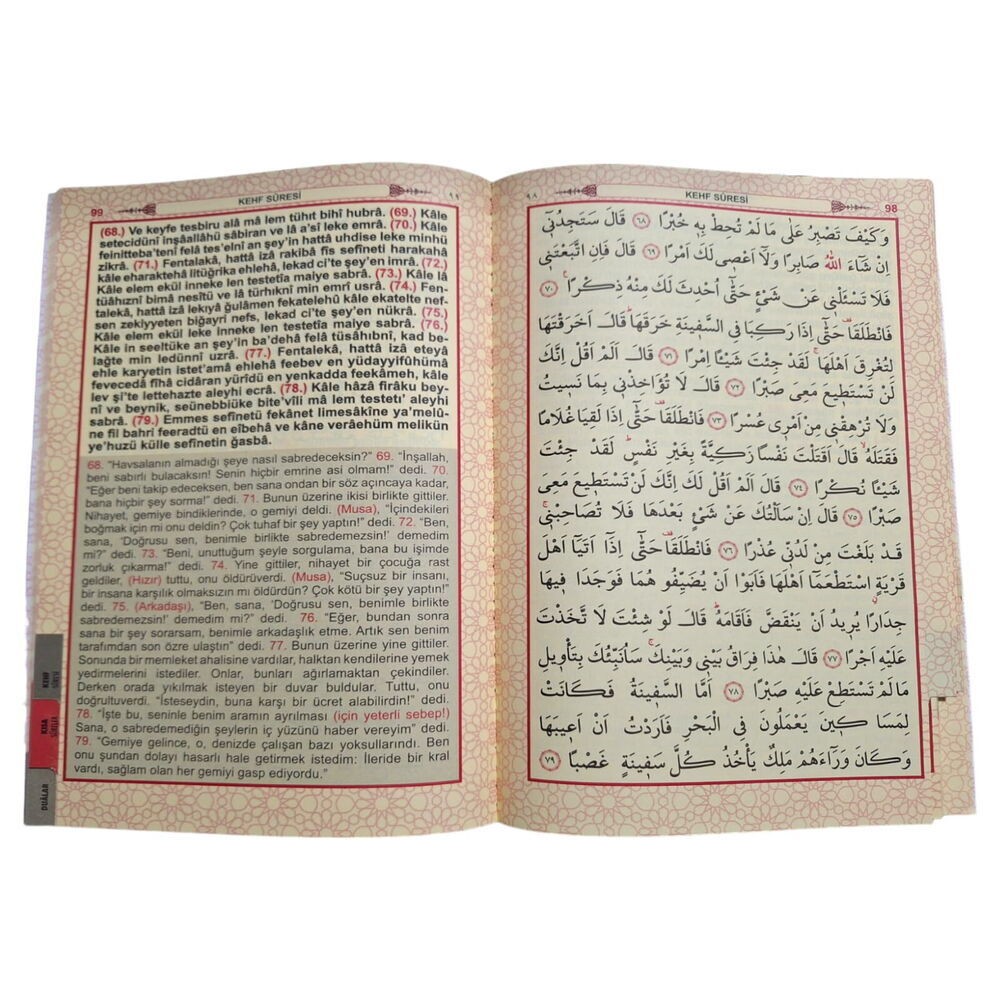 99
KEHF SÛRESİ
٩٩
(68.) Ve keyfe tesbiru alâ mâ lem tühıt bihî hubrâ. (69.) Kâle
setecidünî inşâallâhü sâbiran ve lâ a'sî leke emrâ. (70.) Kâle
feinitteba'tenî felâ tes'elnî an şey'in hattâ uhdise leke minhü
zikrâ. (71.) Fentalakâ, hattâ izâ rakibâ fis sefîneti harakahâ
kâle eharaktehâ litüğrika ehlehâ, lekad ci'te şey'en imrâ. (72.)
Kâle elem ekül inneke len testetîa maiye sabrâ. (73.) Kâle lâ
tüâhıznî bimâ nesîtü ve lâ türhıknî min emrî usrâ. (74.) Fen-
talekâ, hattâ izâ lekıyâ ğulâmen fekatelehû kâle ekatelte nef-
sen zekiyyeten biğayri nefs, lekad ci'te şey'en nükrâ. (75.)
Kâle elem ekül leke inneke len testetîa maiye sabrâ. (76.)
Kâle in seeltüke an şey'in ba'dehâ felâ tüsâhıbnî, kad be-
lağte min ledünnî uzrâ. (77.) Fentalekâ, hattâ izâ eteyâ
ehle karyetin istet'amâ ehlehâ feebev en yüdayyifûhümâ
fevecedâ fîhâ cidâran yürîdü en yenkadda feekâmeh, kâle
lev şi'te lettehazte aleyhi ecrâ. (78.) Kâle hâzâ firâku bey-
nî ve beynik, seünebbiüke bite'vîli mâ lem testetı' aleyhi
sabrâ. (79.) Emmes sefînetü fekânet limesâkîne ya'melû-
ne fil bahri feeradtü en eîbehâ ve kâne verâehüm melikün
ye'huzü külle sefînetin ğasbâ.
68. "Havsalanın almadığı şeye nasıl sabredeceksin?" 69. "İnşallah,
beni sabırlı bulacaksın! Senin hiçbir emrine asi olmam!" dedi. 70.
"Eğer beni takip edeceksen, ben sana ondan bir söz açıncaya kadar,
bana hiçbir şey sorma!" dedi. 71. Bunun üzerine ikisi birlikte gittiler.
Nihayet, gemiye bindiklerinde, o gemiyi deldi. (Musa), "İçindekileri
boğmak için mi onu deldin? Çok tuhaf bir şey yaptın!" dedi. 72. "Ben,
sana, 'Doğrusu sen, benimle birlikte sabredemezsin!' demedim
mi?" dedi. 73. "Beni, unuttuğum şeyle sorgulama, bana bu işimde
zorluk çıkarma!" dedi. 74. Yine gittiler, nihayet bir çocuğa rast
geldiler, (Hızır) tuttu, onu öldürüverdi. (Musa), "Suçsuz bir insanı,
bir insana karşılık olmaksızın mı öldürdün? Çok kötü bir şey yaptın!"
dedi. 75. (Arkadaşı), "Ben, sana, 'Doğrusu sen, benimle birlikte
sabredemezsin!' demedim mi?" dedi. 76. "Eğer, bundan sonra
sana bir şey sorarsam, benimle arkadaşlık etme. Artık sen benim
tarafımdan son özre ulaştın" dedi. 77. Bunun üzerine yine gittiler.
Sonunda bir memleket ahalisine vardılar, halktan kendilerine yemek
yedirmelerini istediler. Onlar, bunları ağırlamaktan çekindiler.
Derken orada yıkılmak isteyen bir duvar buldular. Tuttu, onu
doğrultuverdi. "İsteseydin, buna karşı bir ücret alabilirdin!" dedi.
78. "İşte bu, seninle benim aramın ayrılması (için yeterli sebep!)
Sana, o sabredemediğin şeylerin iç yüzünü haber vereyim" dedi.
79. "Gemiye gelince, o, denizde çalışan bazı yoksullarındı. Ben
onu şundan dolayı hasarlı hale getirmek istedim: İleride bir kral
vardı, sağlam olan her gemiyi gasp ediyordu."
KEHF
SÛRESİ
KISA
DUÂLAR
٩٨
KEHF SÛRESİ
98
وَكَيْفَ تَصْبِرُ عَلٰى مَا لَمْ تُحِطْ بِهٖ خُبْرًا ﴿٦٨﴾ قَالَ سَتَجِدُنٖٓي
اِنْ شَٓاءَ اللّٰهُ صَابِرًا وَلَٓا اَعْصٖي لَكَ اَمْرًا ﴿٦٩﴾ قَالَ فَاِنِ اتَّبَعْتَنٖي
فَلَا تَسْـَٔلْنٖي عَنْ شَيْءٍ حَتّٰٓى اُحْدِثَ لَكَ مِنْهُ ذِكْرًا ﴿٧٠﴾
فَانْطَلَقَا حَتّٰٓى اِذَا رَكِبَا فِي السَّفٖينَةِ خَرَقَهَا قَالَ اَخَرَقْتَهَا
لِتُغْرِقَ اَهْلَهَا لَقَدْ جِئْتَ شَيْـًٔا اِمْرًا ﴿٧١﴾ قَالَ اَلَمْ اَقُلْ اِنَّكَ
لَنْ تَسْتَطٖيعَ مَعِيَ صَبْرًا ﴿٧٢﴾ قَالَ لَا تُؤَاخِذْنٖي بِمَا نَسٖيتُ
وَلَا تُرْهِقْنٖي مِنْ اَمْرٖي عُسْرًا ﴿٧٣﴾ فَانْطَلَقَا حَتّٰٓى اِذَا لَقِيَا غُلَامًا
فَقَتَلَهُ قَالَ اَقَتَلْتَ نَفْسًا زَكِيَّةً بِغَيْرِ نَفْسٍ لَقَدْ جِئْتَ
شَيْـًٔا نُكْرًا ﴿٧٤﴾ قَالَ اَلَمْ اَقُلْ لَكَ اِنَّكَ لَنْ تَسْتَطٖيعَ مَعِيَ
صَبْرًا ﴿٧٥﴾ قَالَ اِنْ سَاَلْتُكَ عَنْ شَيْءٍ بَعْدَهَا فَلَا تُصَاحِبْنٖي
قَدْ بَلَغْتَ مِنْ لَدُنّٖي عُذْرًا ﴿٧٦﴾ فَانْطَلَقَا حَتّٰٓى اِذَٓا اَتَيَٓا اَهْلَ
قَرْيَةٍ اسْتَطْعَمَٓا اَهْلَهَا فَاَبَوْا اَنْ يُضَيِّفُوهُمَا فَوَجَدَا فٖيهَا
جِدَارًا يُرٖيدُ اَنْ يَنْقَضَّ فَاَقَامَهُ قَالَ لَوْ شِئْتَ لَتَّخَذْتَ
عَلَيْهِ اَجْرًا ﴿٧٧﴾ قَالَ هٰذَا فِرَاقُ بَيْنٖي وَبَيْنِكَ سَاُنَبِّئُكَ بِتَأْوٖيلِ
مَا لَمْ تَسْتَطِعْ عَلَيْهِ صَبْرًا ﴿٧٨﴾ اَمَّا السَّفٖينَةُ فَكَانَتْ
لِمَسَاكٖينَ يَعْمَلُونَ فِي الْبَحْرِ فَاَرَدْتُ اَنْ اَعٖيبَهَا
وَكَانَ وَرَٓاءَهُمْ مَلِكٌ يَأْخُذُ كُلَّ سَفٖينَةٍ غَصْبًا ﴿٧٩﴾